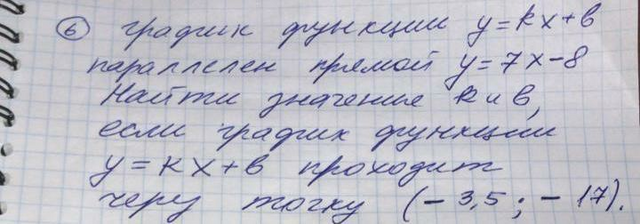 6 график функции y=kx+b
параллелен прямой y=7x-8
Найти значение k и b,
если график функции
y=kx+b проходит
через точку (-3,5; -17).